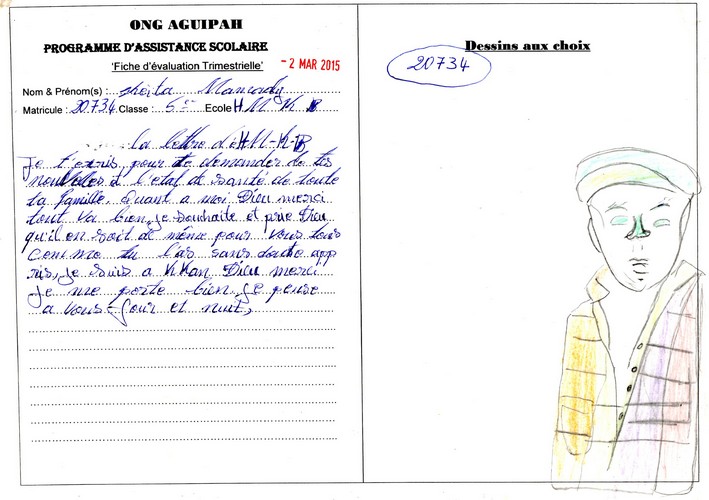 ONG AGUIPAH
PROGRAMME D'ASSISTANCE SCOLAIRE
'Fiche d'évaluation Trimestrielle'
- 2 MAR 2015
Nom & Prénom(s) : Keita
Matricule : 20734 Classe : 5è Ecole H M K B
la lettre d'H M-K-B
Je t'ecris pour te demander de tes
nouvelles et l'etat de santé de toute
ta famille. Quant a moi Dieu merci
tout va bien, je souhaite et prie Dieu
qu'il en soit de même pour vous tous
comme tu l'as sans doute app
ris, je suis a Dieu merci
Je me porte bien. Je pense
a vous jour et nuit,
Dessins aux choix
20734